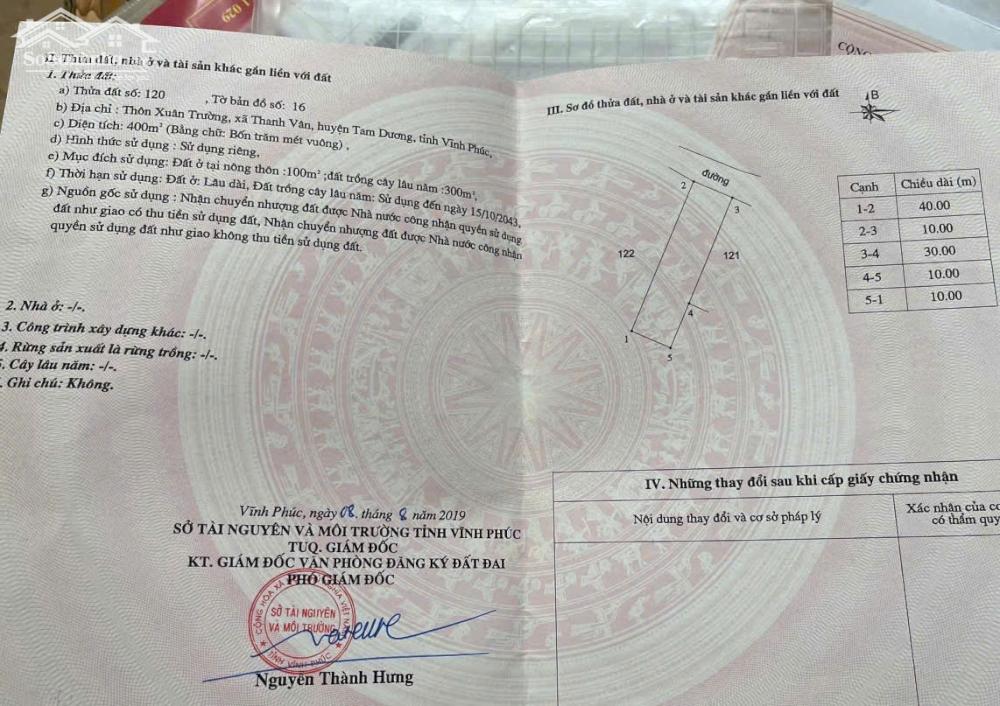 1 029
CÔNG
II. Thửa đất, nhà ở và tài sản khác gắn liền với đất
1. Thửa đất:
a) Thửa đất số: 120 , Tờ bản đồ số: 16
b) Địa chỉ : Thôn Xuân Trường, xã Thanh Vân, huyện Tam Dương, tỉnh Vĩnh Phúc,
c) Diện tích: 400m² (Bằng chữ: Bốn trăm mét vuông) ,
d) Hình thức sử dụng : Sử dụng riêng,
e) Mục đích sử dụng: Đất ở tại nông thôn :100m² ;đất trồng cây lâu năm :300m²,
f) Thời hạn sử dụng: Đất ở: Lâu dài, Đất trồng cây lâu năm: Sử dụng đến ngày 15/10/2043,
g) Nguồn gốc sử dụng : Nhận chuyển nhượng đất được Nhà nước công nhận quyền sử dụng
đất như giao có thu tiền sử dụng đất, Nhận chuyển nhượng đất được Nhà nước công nhận
quyền sử dụng đất như giao không thu tiền sử dụng đất.
2. Nhà ở: -/-.
3. Công trình xây dựng khác: -/-.
4. Rừng sản xuất là rừng trồng: -/-.
. Cây lâu năm: -/-.
. Ghi chú: Không.
Vĩnh Phúc, ngày 08. tháng 8 năm 2019
SỞ TÀI NGUYÊN VÀ MÔI TRƯỜNG TỈNH VĨNH PHÚC
TUQ. GIÁM ĐỐC
KT. GIÁM ĐỐC VĂN PHÒNG ĐĂNG KÝ ĐẤT ĐAI
PHÓ GIÁM ĐỐC
SỞ TÀI NGUYÊN
VÀ MÔI TRƯỜNG
TỈNH VĨNH PHÚC
Nguyễn Thành Hưng
III. Sơ đồ thửa đất, nhà ở và tài sản khác gắn liền với đất
B
đường
2
3
122
121
4
1
5
Cạnh Chiều dài (m)
1-2 40.00
2-3 10.00
3-4 30.00
4-5 10.00
5-1 10.00
IV. Những thay đổi sau khi cấp giấy chứng nhận
Nội dung thay đổi và cơ sở pháp lý
Xác nhận của cơ
có thẩm quy